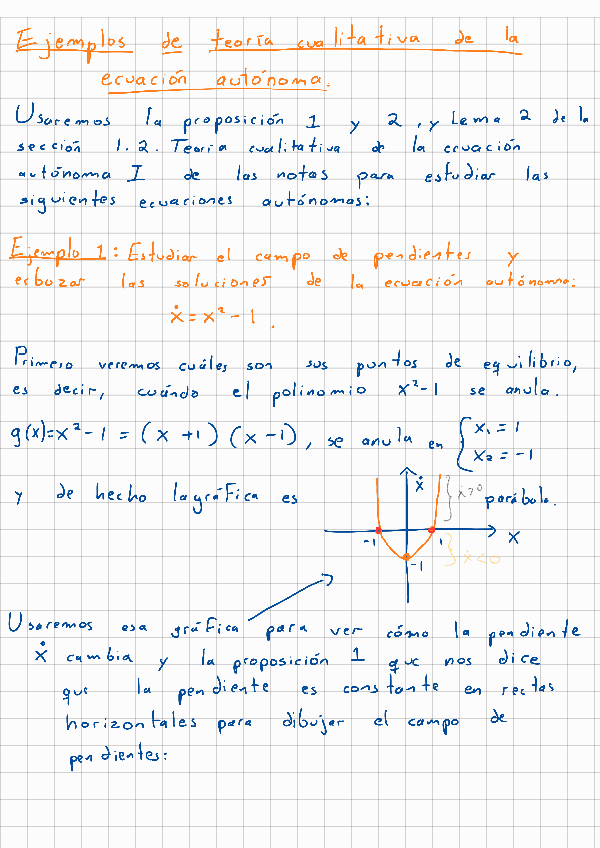 Ejemplos de teoría cualitativa de la
ecuación autónoma.
Usaremos la proposición 1 y 2, y Lema 2 de la
sección 1.2. Teoría cualitativa de la ecuación
autónoma I de las notas para estudiar las
siguientes ecuaciones autónomas:
Ejemplo 1: Estudiar el campo de pendientes y
esbozar las soluciones de la ecuación autónoma:
ẋ = x² - 1.
Primero veremos cuáles son sus puntos de equilibrio,
es decir, cuándo el polinomio x²-1 se anula.
g(x)=x²-1 = (x+1)(x-1), se anula en { x₁ = 1
x₂ = -1
y de hecho la gráfica es
ẋ
} ẋ>0
parábola.
-1
1
x
-1
} ẋ<0
Usaremos esa gráfica para ver cómo la pendiente
ẋ cambia y la proposición 1 que nos dice
que la pendiente es constante en rectas
horizontales para dibujar el campo de
pendientes: